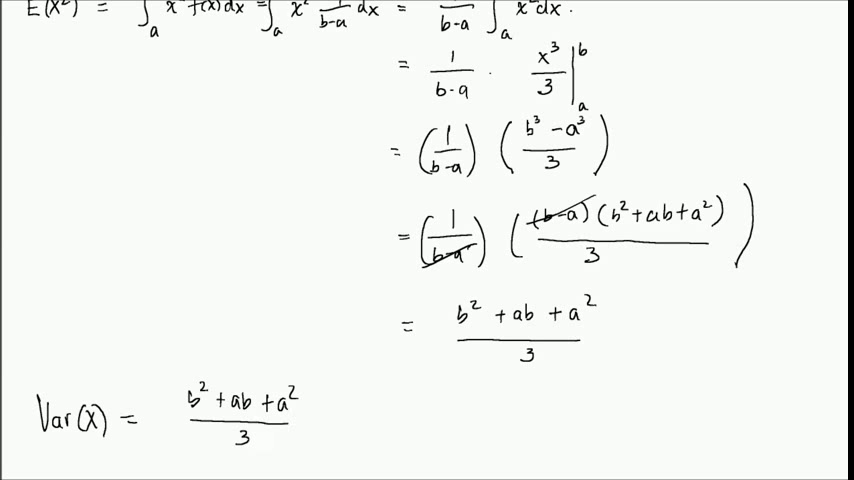 E(X²) = ∫ₐ x² f(x) dx = ∫ₐ x² 1/(b-a) dx = 1/(b-a) ∫ₐ x² dx.
= 1/(b-a) · x³/3 |ₐᵇ
= (1/(b-a)) ((b³ - a³)/3)
= (1/(b-a)) ((b-a)(b² + ab + a²)/3)
= (b² + ab + a²)/3
Var(X) = (b² + ab + a²)/3